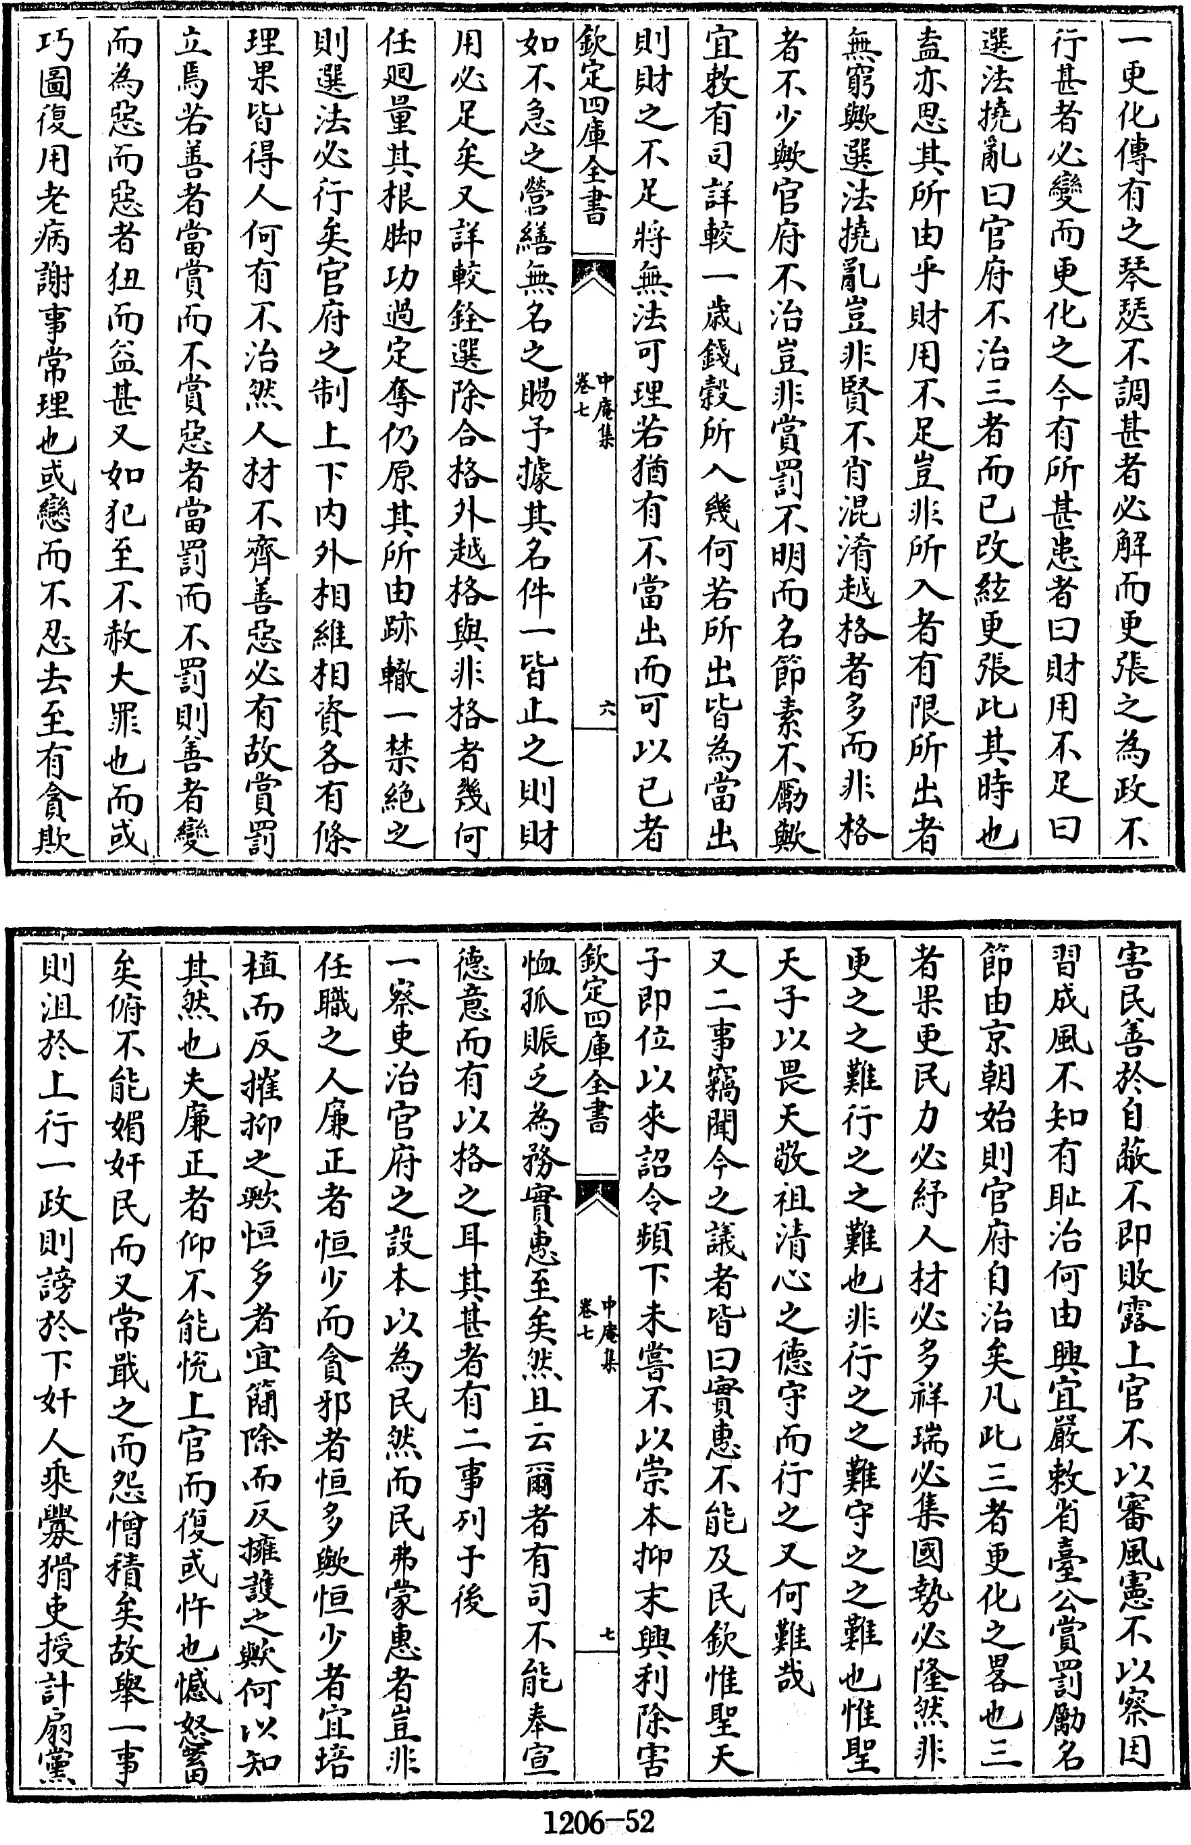 一更化傳有之琴瑟不調甚者必解而更張之為政不
行甚者必變而更化之今有所甚患者曰財用不足曰
選法撓亂曰官府不治三者而已改絃更張此其時也
盍亦思其所由乎財用不足豈非所入者有限所出者
無窮歟選法撓亂豈非賢不肖混淆越格者多而非格
者不少歟官府不治豈非賞罰不明而名節素不勵歟
宜敕有司詳較一歳錢穀所入幾何若所出皆為當出
則財之不足將無法可理若猶有不當出而可以已者
欽定四庫全書
中庵集
卷七
六
如不急之營繕無名之賜予據其名件一皆止之則財
用必足矣又詳較銓選除合格外越格與非格者幾何
任廻量其根脚功過定奪仍原其所由跡轍一禁絶之
則選法必行矣官府之制上下内外相維相資各有條
理果皆得人何有不治然人材不齊善惡必有故賞罰
立焉若善者當賞而不賞惡者當罰而不罰則善者變
而為惡而惡者狃而益甚又如犯至不赦大罪也而或
巧圖復用老病謝事常理也或戀而不忍去至有貪欺
害民善於自蔽不即敗露上官不以審風憲不以察因
習成風不知有耻治何由興宜嚴敕省臺公賞罰勵名
節由京朝始則官府自治矣凡此三者更化之畧也三
者果更民力必紓人材必多祥瑞必集國勢必隆然非
更之之難行之之難也非行之之難守之之難也惟聖
天子以畏天敬祖清心之德守而行之又何難哉
又二事竊聞今之議者皆曰實惠不能及民欽惟聖天
子即位以來詔令頻下未嘗不以崇本抑末興利除害
欽定四庫全書
中庵集
卷七
七
恤孤賑乏為務實惠至矣然且云爾者有司不能奉宣
德意而有以格之耳其甚者有二事列于後
一察吏治官府之設本以為民然而民弗蒙惠者豈非
任職之人廉正者恒少而貪邪者恒多歟恒少者宜培
植而反摧抑之歟恒多者宜簡除而反擁護之歟何以知
其然也夫廉正者仰不能悦上官而復或忤也憾怒蓄
矣俯不能媚奸民而又常戢之而怨憎積矣故舉一事
則沮於上行一政則謗於下奸人乘釁猾吏授計扇黨
1206-52